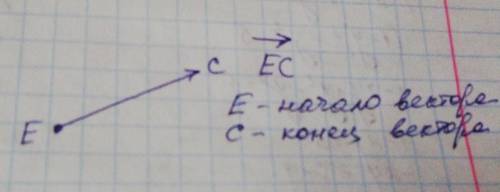 C \overrightarrow{EC}
E - начало вектора
E C - конец вектора